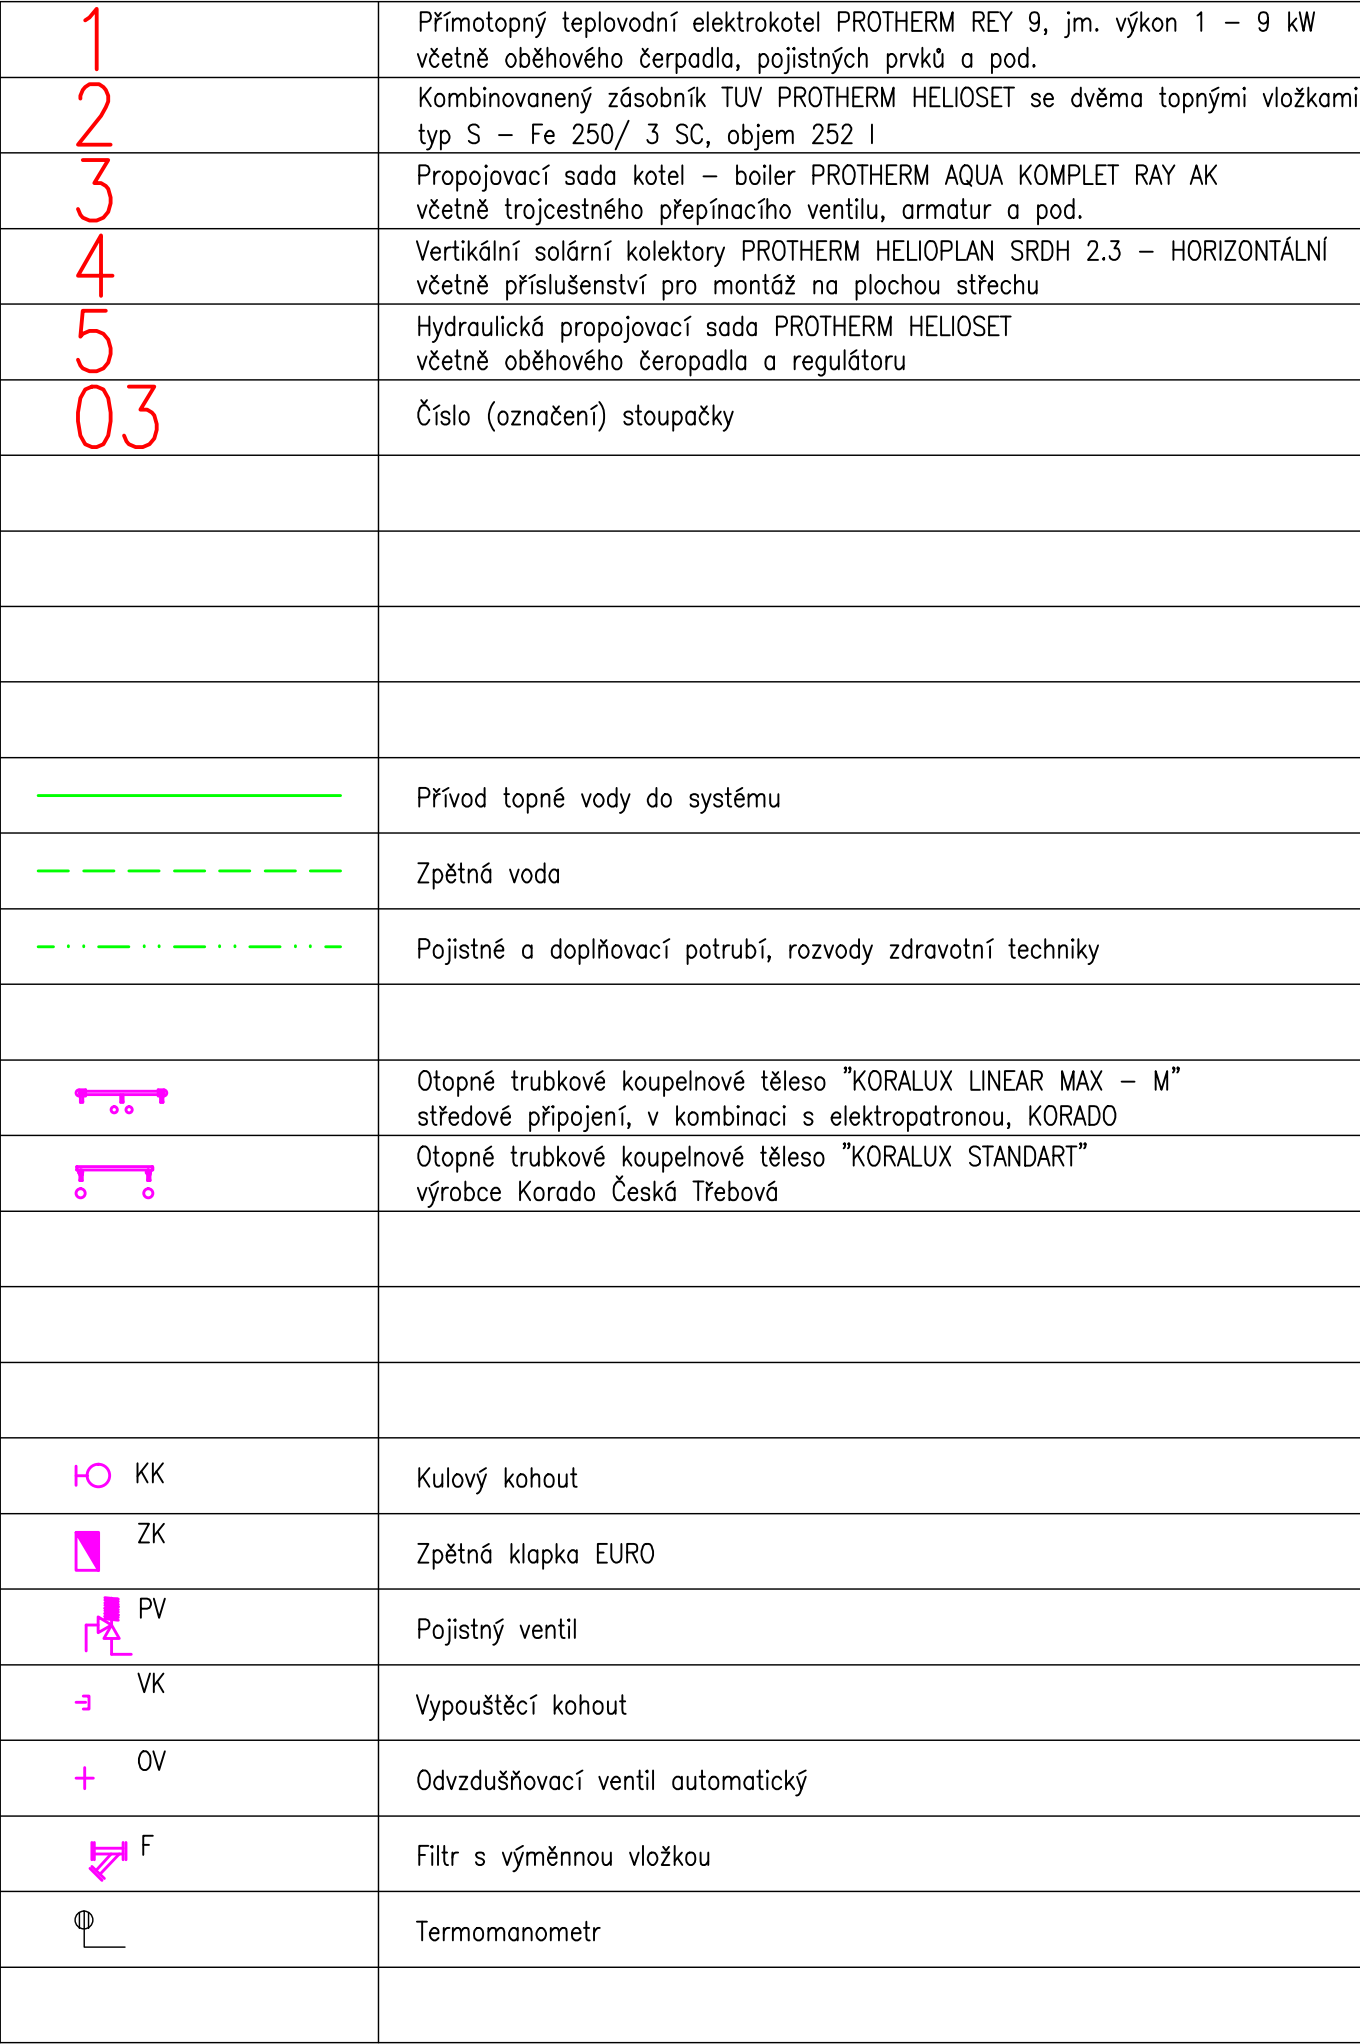 1
Přímotopný teplovodní elektrokotel PROTHERM REY 9, jm. výkon 1 – 9 kW
včetně oběhového čerpadla, pojistných prvků a pod.
2
Kombinovanený zásobník TUV PROTHERM HELIOSET se dvěma topnými vložkami
typ S – Fe 250/ 3 SC, objem 252 l
3
Propojovací sada kotel – boiler PROTHERM AQUA KOMPLET RAY AK
včetně trojcestného přepínacího ventilu, armatur a pod.
4
Vertikální solární kolektory PROTHERM HELIOPLAN SRDH 2.3 – HORIZONTÁLNÍ
včetně příslušenství pro montáž na plochou střechu
5
Hydraulická propojovací sada PROTHERM HELIOSET
včetně oběhového čeropadla a regulátoru
03
Číslo (označení) stoupačky
Přívod topné vody do systému
Zpětná voda
Pojistné a doplňovací potrubí, rozvody zdravotní techniky
Otopné trubkové koupelnové těleso "KORALUX LINEAR MAX – M"
středové připojení, v kombinaci s elektropatronou, KORADO
Otopné trubkové koupelnové těleso "KORALUX STANDART"
výrobce Korado Česká Třebová
KK
Kulový kohout
ZK
Zpětná klapka EURO
PV
Pojistný ventil
VK
Vypouštěcí kohout
OV
Odvzdušňovací ventil automatický
F
Filtr s výměnnou vložkou
Termomanometr